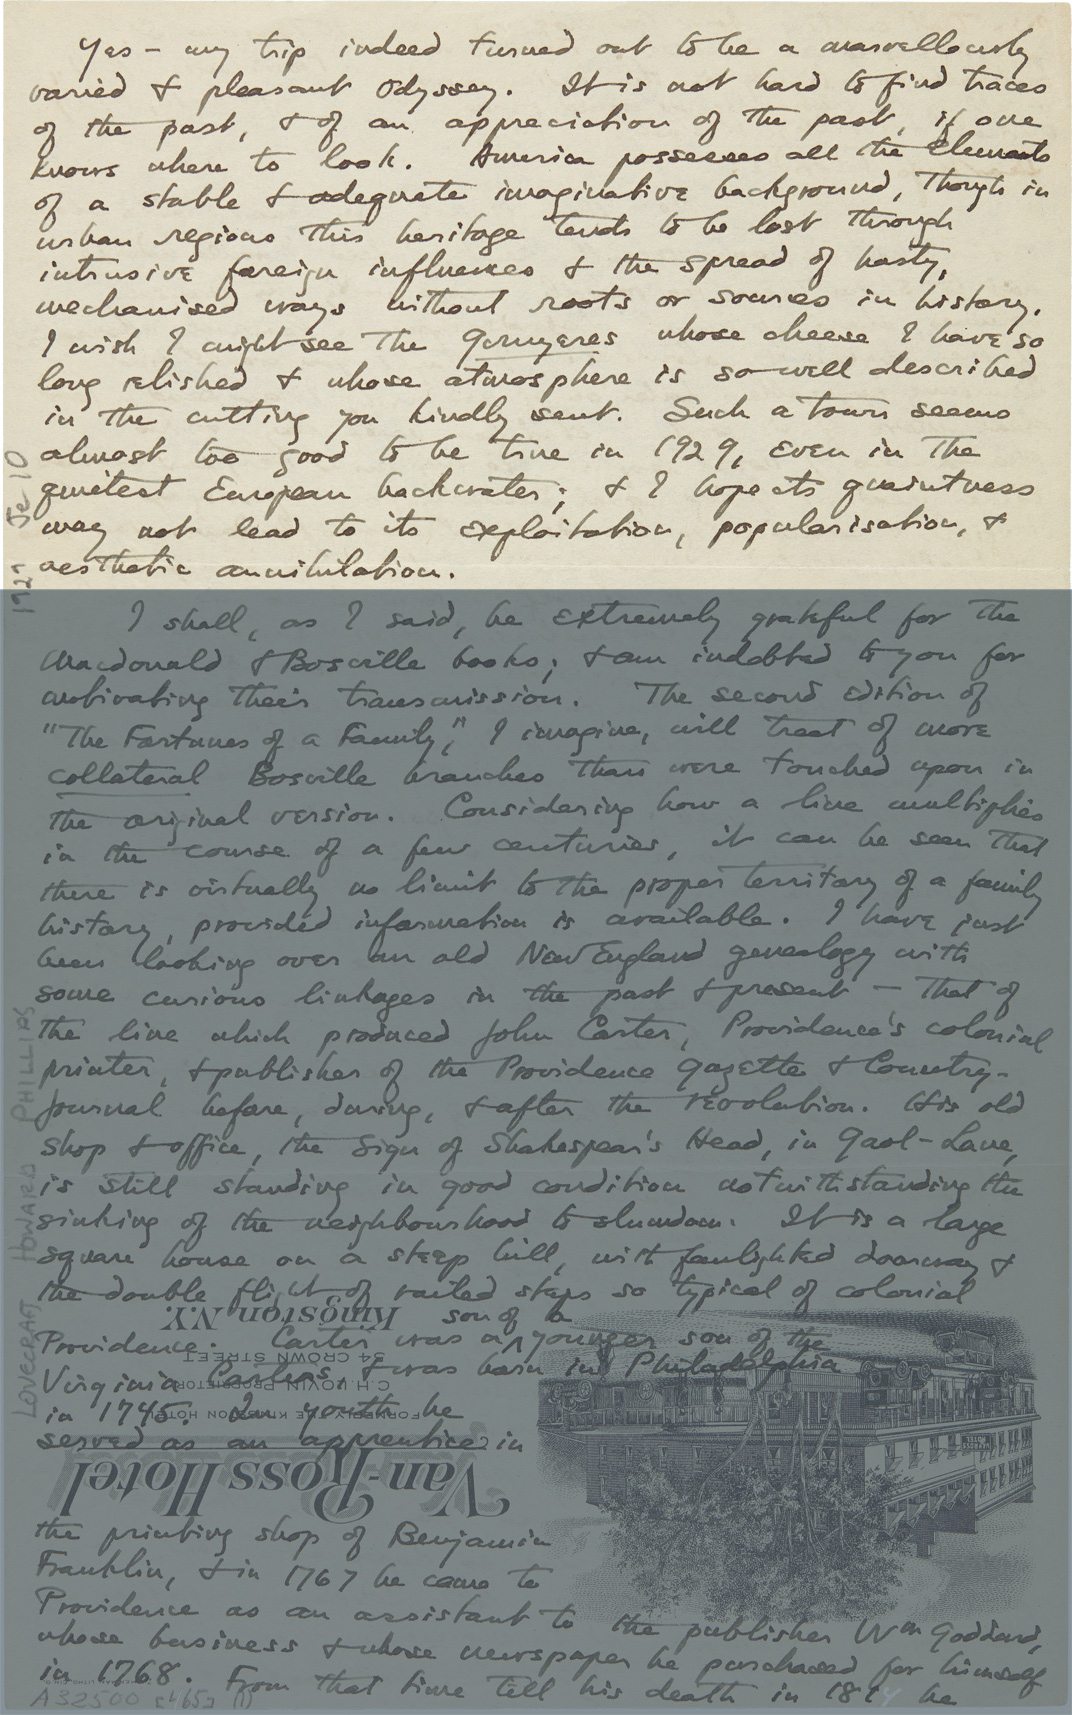 Yes – my trip indeed turned out to be a marvellously
varied & pleasant odyssey. It is not hard to find traces
of the past, & of an appreciation of the past, if one
knows where to look. America possesses all the elements
of a stable & adequate imaginative background, though in
urban regions this heritage tends to be lost through
intrusive foreign influences & the spread of hasty,
mechanised ways without roots or sources in history.
I wish I might see the Gruyeres whose cheese I have so
long relished & whose atmosphere is so well described
in the cutting you kindly sent. Such a town seems
almost too good to be true in 1929, even in the
quietest European backwater; & I hope its quaintness
may not lead to its exploitation, popularisation, &
aesthetic annihilation.
I shall, as I said, be extremely grateful for the
Macdonald & Bosville books; & am indebted to you for
motivating their transmission. The second edition of
"The Fortunes of a Family," I imagine, will treat of more
collateral Bosville branches than were touched upon in
the original version. Considering how a line multiplies
in the course of a few centuries, it can be seen that
there is virtually no limit to the proper territory of a family
history, provided information is available. I have just
been looking over an old New England genealogy with
some curious linkages in the past & present – that of
the line which produced John Carter, Providence's colonial
printer, & publisher of the Providence Gazette & Country-
Journal before, during, & after the revolution. His old
shop & office, the Sign of Shakespear's Head, in Gaol-Lane,
is still standing in good condition notwithstanding the
sinking of the neighbourhood to slumdom. It is a large
square house on a steep hill, with fanlighted doorway &
the double flight of railed steps so typical of colonial
Providence. Carter was a son of a younger son of the
Virginia Carters, & was born in Philadelphia
in 1745. In youth he
served as an apprentice in
the printing shop of Benjamin
Franklin, & in 1767 he came to
Providence as an assistant to the publisher Wm Goddard,
whose business & whose newspaper he purchased for himself
in 1768. From that time till his death in 1814 he
Van-Ross Hotel
FORMERLY THE KINGSTON HOTEL
C.H. LOVIN PROPRIETOR
54 CROWN STREET
Kingston N.Y.
LOVECRAFT HOWARD PHILLIPS
1929 Je 10
A32500